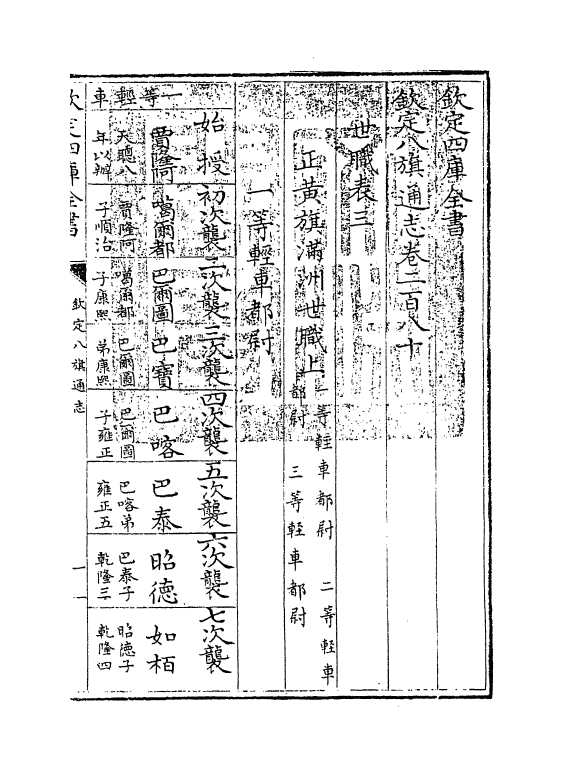 欽定四庫全書
欽定八旗通志卷二百八十
世職表三
正黃旗滿洲世職上
一等輕車都尉 二等輕車
都尉 三等輕車都尉
一等輕車都尉
始授 初次襲 二次襲 三次襲 四次襲 五次襲 六次襲 七次襲
賈隆阿 噶爾都 巴爾圖 巴寶 巴喀 巴泰 昭德 如栢
天聰八 賈隆阿 噶爾都 巴爾圖 巴爾圖 巴喀弟 巴泰子 昭德子
年以辦 子順治 子康熙 弟康熙 子雍正 雍正五 乾隆三 乾隆四
一等輕車
欽定四庫全書
欽定八旗通志
一